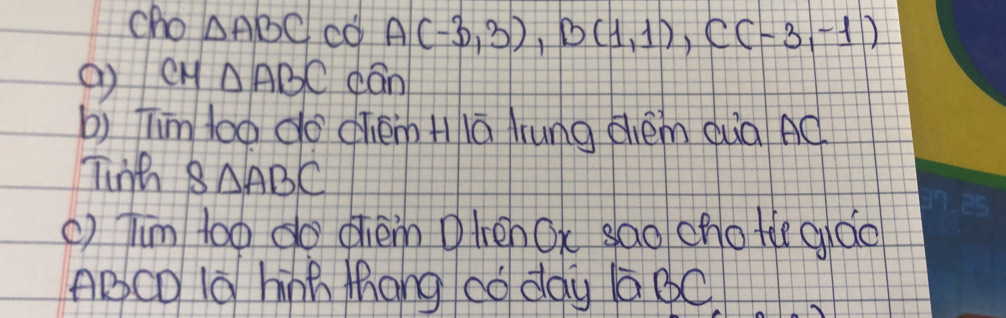 Cho ΔABC có A(-3,3), B(1,1), C(-3,-1)
a) CM ΔABC cân
b) Tìm toạ độ điểm H là trung điểm của AC
Tính SΔABC
c) Tìm toạ độ điểm D trên Ox sao cho tứ giác
ABCD là hình thang có đáy là BC
37.25